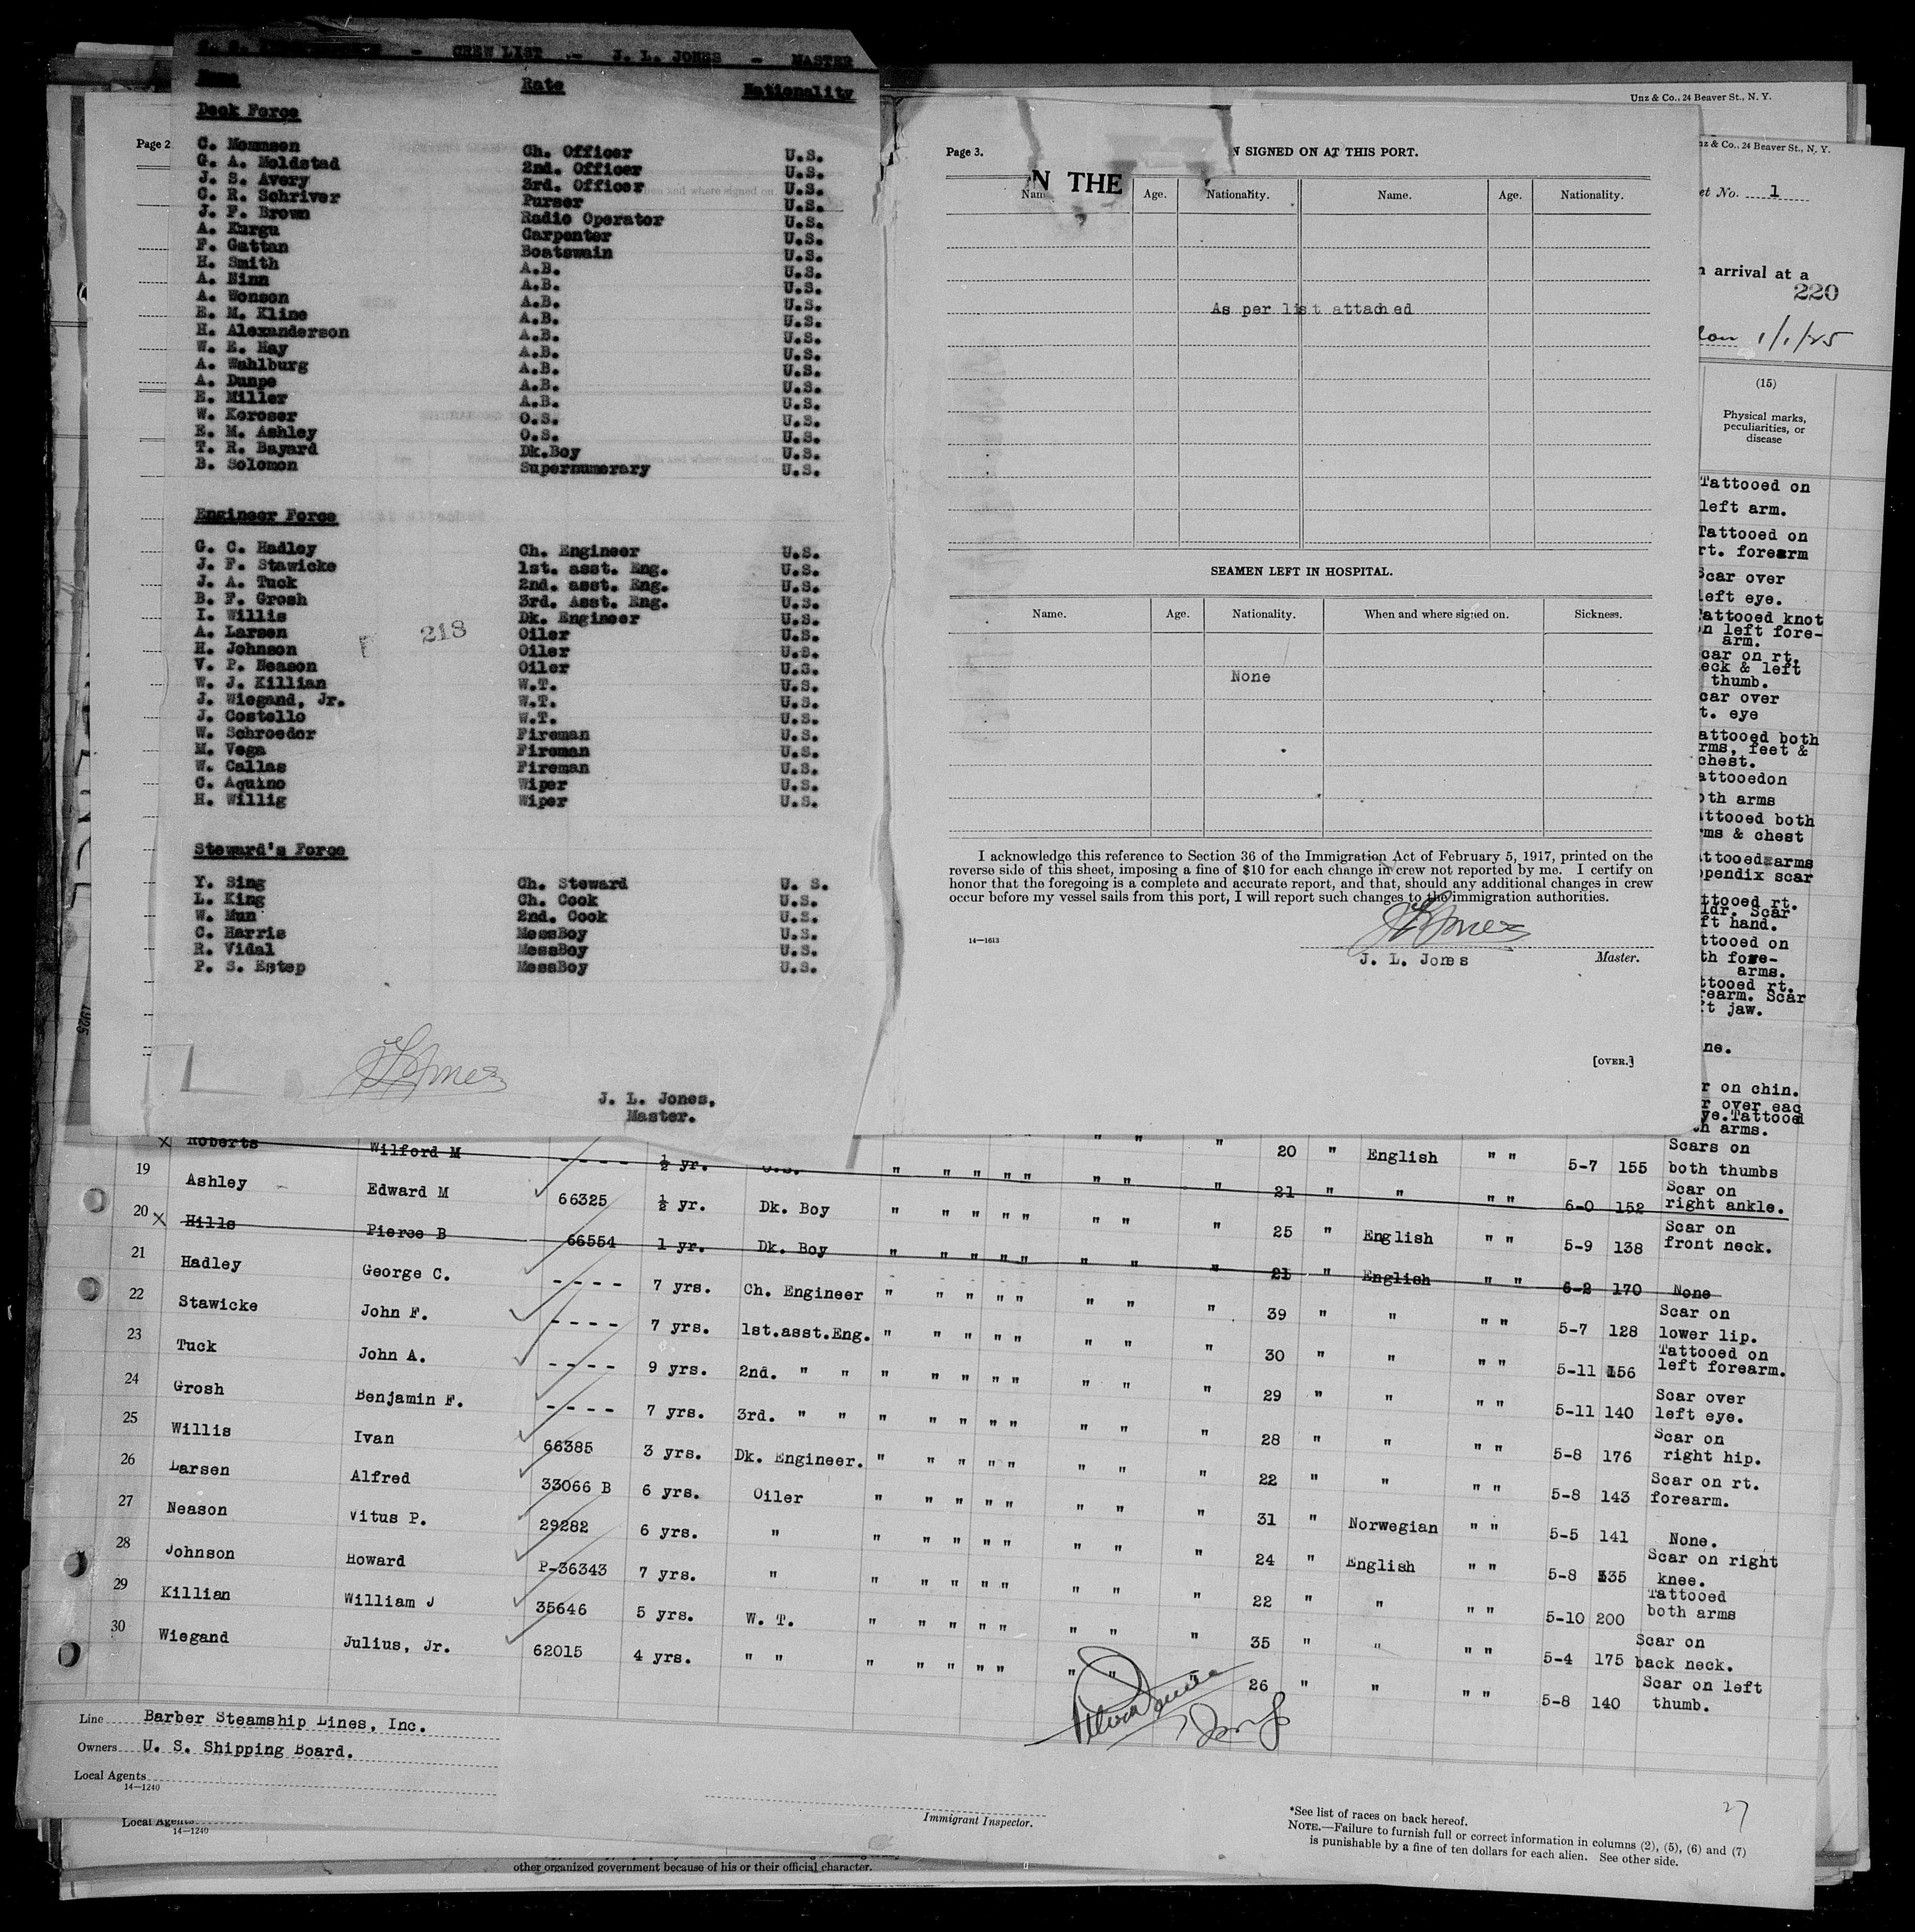 CREW LIST - J. L. JONES - MASTER
Name Rate Nationality
Deck Force
C. Mommsen Ch. Officer U.S.
G. A. Moldstad 2nd. Officer U.S.
J. S. Avery 3rd. Officer U.S.
C. R. Schriver Purser U.S.
J. P. Brown Radio Operator U.S.
A. Kurgu Carpenter U.S.
F. Gattan Boatswain U.S.
H. Smith A.B. U.S.
A. Ninn A.B. U.S.
A. Wonson A.B. U.S.
E. M. Kline A.B. U.S.
H. Alexanderson A.B. U.S.
W. E. Hay A.B. U.S.
A. Wahlburg A.B. U.S.
A. Dunpe A.B. U.S.
E. Miller A.B. U.S.
W. Koroser O.S. U.S.
E. M. Ashley O.S. U.S.
T. R. Bayard Dk.Boy U.S.
B. Solomon Supernumerary U.S.
Engineer Force
G. C. Hadley Ch. Engineer U.S.
J. F. Stawicke 1st. asst. Eng. U.S.
J. A. Tuck 2nd. asst. Eng. U.S.
B. F. Grosh 3rd. Asst. Eng. U.S.
I. Willis Dk. Engineer U.S.
A. Larsen Oiler U.S.
H. Johnson Oiler U.S.
V. P. Neason Oiler U.S.
W. J. Killian W.T. U.S.
J. Wiegand, Jr. W.T. U.S.
J. Costello W.T. U.S.
W. Schroeder Fireman U.S.
M. Vega Fireman U.S.
W. Callas Fireman U.S.
C. Aquino Wiper U.S.
H. Willig Wiper U.S.
218
Steward's Force
Y. Sing Ch. Steward U. S.
L. King Ch. Cook U.S.
W. Mun 2nd. Cook U.S.
C. Harris MessBoy U.S.
R. Vidal MessBoy U.S.
P. S. Estep MessBoy U.S.
J L Jones
J. L. Jones,
Master.
Page 2
Page 3.
N SIGNED ON AT THIS PORT.
N THE
Nam Age. Nationality. Name. Age. Nationality.
As per list attached
SEAMEN LEFT IN HOSPITAL.
Name. Age. Nationality. When and where signed on. Sickness.
None
I acknowledge this reference to Section 36 of the Immigration Act of February 5, 1917, printed on the
reverse side of this sheet, imposing a fine of $10 for each change in crew not reported by me. I certify on
honor that the foregoing is a complete and accurate report, and that, should any additional changes in crew
occur before my vessel sails from this port, I will report such changes to the immigration authorities.
J L Jones
14—1613
J. L. Jones Master.
[OVER.]
Unz & Co., 24 Beaver St., N. Y.
nz & Co., 24 Beaver St., N. Y.
et No. 1
n arrival at a
220
1/1/25
(15)
Physical marks,
peculiarities, or
disease
Tattooed on
left arm.
Tattooed on
rt. forearm
Scar over
left eye.
attooed knot
n left fore-
arm.
car on rt.
eck & left
thumb.
car over
t. eye
attooed both
rms, feet &
chest.
attooedon
oth arms
ttooed both
rms & chest
ttooed arms
ppendix scar
ttooed rt.
ldr. Scar
ft hand.
ttooed on
th fore-
arms.
ttooed rt.
rearm. Scar
ft jaw.
ne.
r on chin.
r over eac
ye. Tattooed
h arms.
20 " English " " 5-7 155 Scars on both thumbs
x Roberts Wilford M - - - - ½ yr. O.S. " " " " " " " " 21 " " " " 6-0 152 Scar on right ankle.
19 Ashley Edward M 66325 ½ yr. Dk. Boy " " " " " " " " 25 " English " " 5-9 138 Scar on front neck.
20 x Hills Pierce B 66554 1 yr. Dk. Boy " " " " " " " " 21 " English " " 6-2 170 None
21 Hadley George C. - - - - 7 yrs. Ch. Engineer " " " " " " " " 39 " " " " 5-7 128 Scar on lower lip.
22 Stawicke John F. - - - - 7 yrs. 1st.asst.Eng. " " " " " " " " 30 " " " " 5-11 156 Tattooed on left forearm.
23 Tuck John A. - - - - 9 yrs. 2nd. " " " " " " " " " " 29 " " " " 5-11 140 Scar over left eye.
24 Grosh Benjamin F. - - - - 7 yrs. 3rd. " " " " " " " " " " 28 " " " " 5-8 176 Scar on right hip.
25 Willis Ivan 66385 3 yrs. Dk. Engineer. " " " " " " " " 22 " " " " 5-8 143 Scar on rt. forearm.
26 Larsen Alfred 33066 B 6 yrs. Oiler " " " " " " " " 31 " Norwegian " " 5-5 141 None.
27 Neason Vitus P. 29282 6 yrs. " " " " " " " " " 24 " English " " 5-8 135 Scar on right knee.
28 Johnson Howard P-36343 7 yrs. " " " " " " " " " 22 " " " " 5-10 200 Tattooed both arms
29 Killian William J 35646 5 yrs. W. T. " " " " " " " " 35 " " " " 5-4 175 Scar on back neck.
30 Wiegand Julius, Jr. 62015 4 yrs. " " " " " " " " " " 26 " " " " 5-8 140 Scar on left thumb.
Line Barber Steamship Lines, Inc.
Owners U. S. Shipping Board.
Local Agents
14—1240
Immigrant Inspector.
*See list of races on back hereof.
NOTE.—Failure to furnish full or correct information in columns (2), (5), (6) and (7)
is punishable by a fine of ten dollars for each alien. See other side.
27
Local Agents
14—1240
other organized government because of his or their official character.